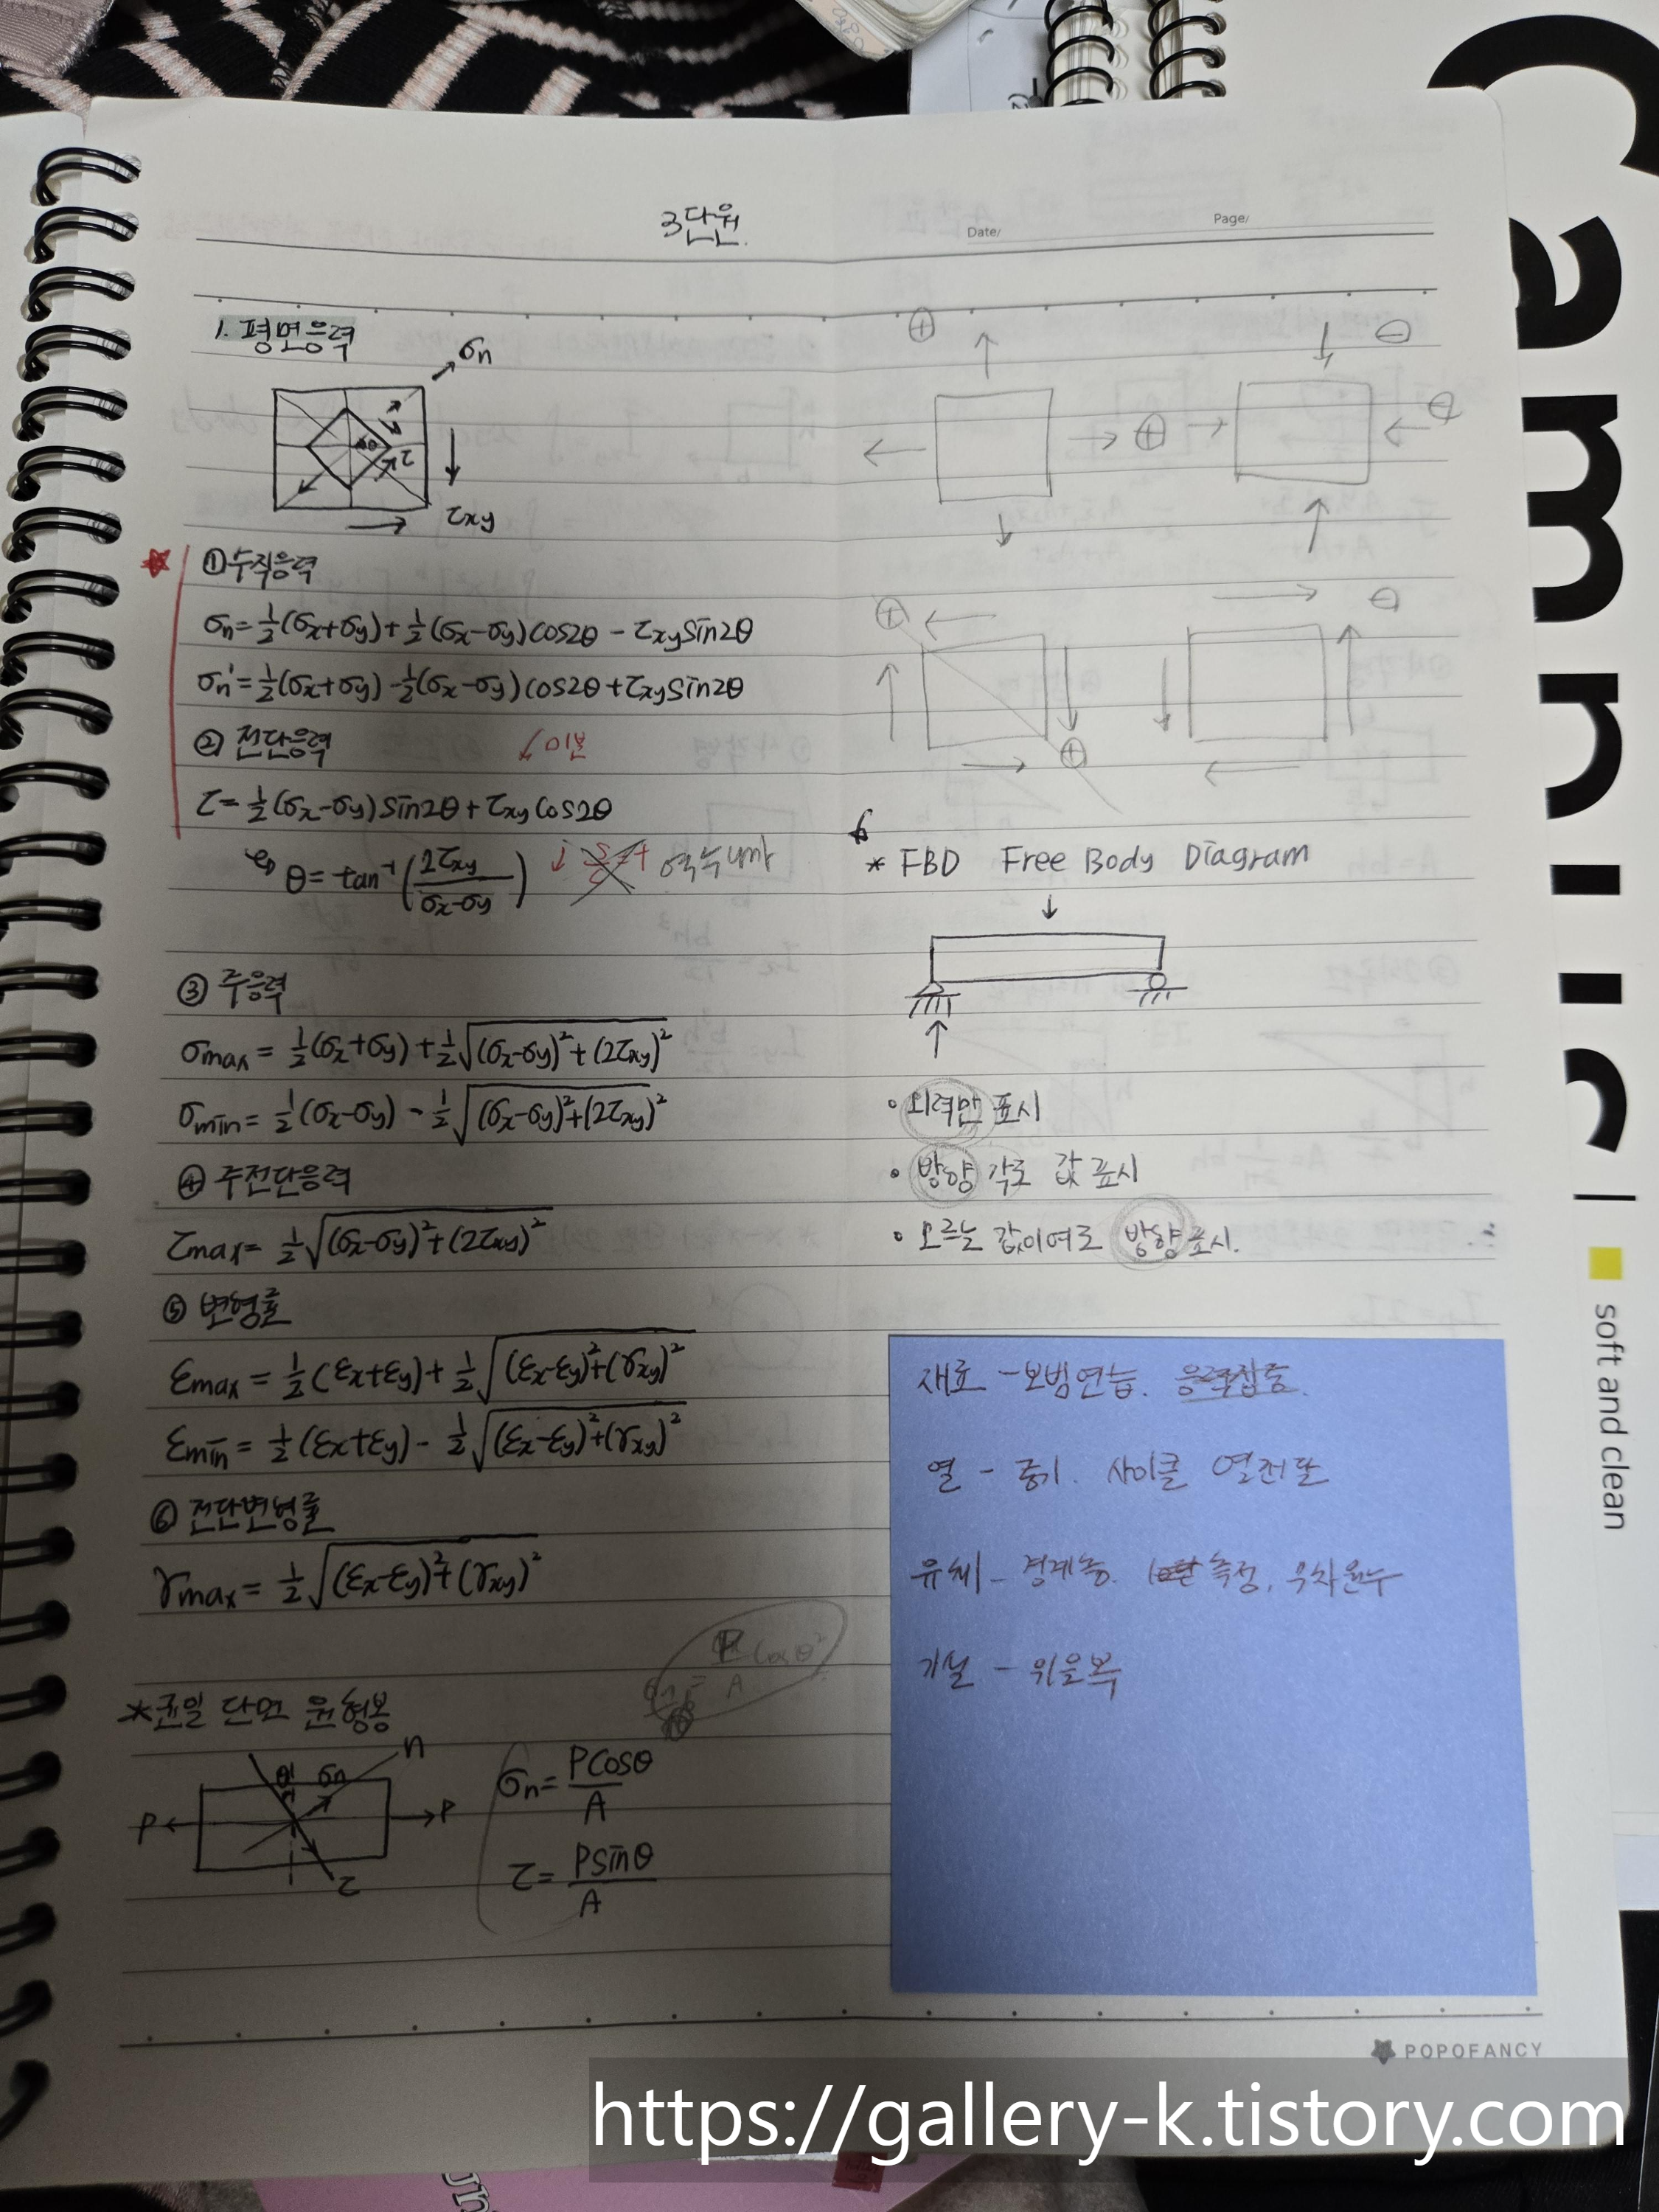 3단원.
Date/
Page/
1. 평면응력
σn
τ
τxy
①수직응력
σn=½(σx+σy)+½(σx-σy)cos2θ - τxysin2θ
σn'=½(σx+σy)-½(σx-σy)cos2θ+τxysin2θ
② 전단응력
미분
τ=½(σx-σy)sin2θ+τxycos2θ
θ=tan⁻¹(2τxy/σx-σy)
③ 주응력
σmax = ½(σx+σy)+½√(σx-σy)²+(2τxy)²
σmin = ½(σx-σy) - ½√(σx-σy)²+(2τxy)²
④ 주전단응력
τmax= ½√(σx-σy)²+(2τxy)²
⑤ 변형률
εmax = ½(εx+εy)+½√(εx-εy)²+(γxy)²
εmin = ½(εx+εy)-½√(εx-εy)²+(γxy)²
⑥ 전단변형률
γmax= ½√(εx-εy)²+(γxy)²
*균일 단면 원형봉
P
θ
σn
n
P
τ
σn= Pcosθ/A
τ= Psinθ/A
⊕
⊖
⊕
⊖
⊕
⊖
⊕
* FBD Free Body Diagram
• 외력만 표시
• 방향 각도 값 표시
• 모르는 값이여도 방향표시.
재료 - 보범연습. 응력집중.
열 - 증기. 사이클 열전달
유체 - 경계층. 측정, 무차원수
기설 - 위을복
POPOFANCY
soft and clean
https://gallery-k.tistory.com